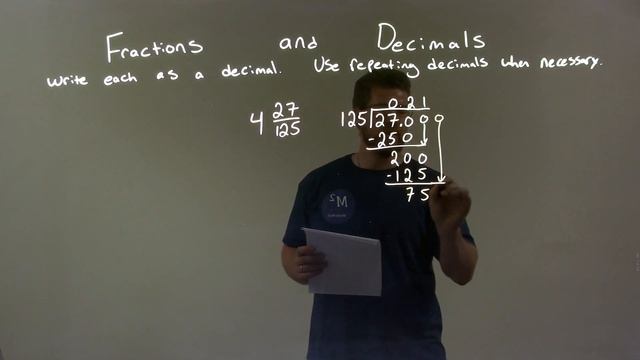 Fractions and Decimals
Write each as a decimal. Use repeating decimals when necessary.
4 27/125
0.21
125 27.000
-250
200
-125
75
M²